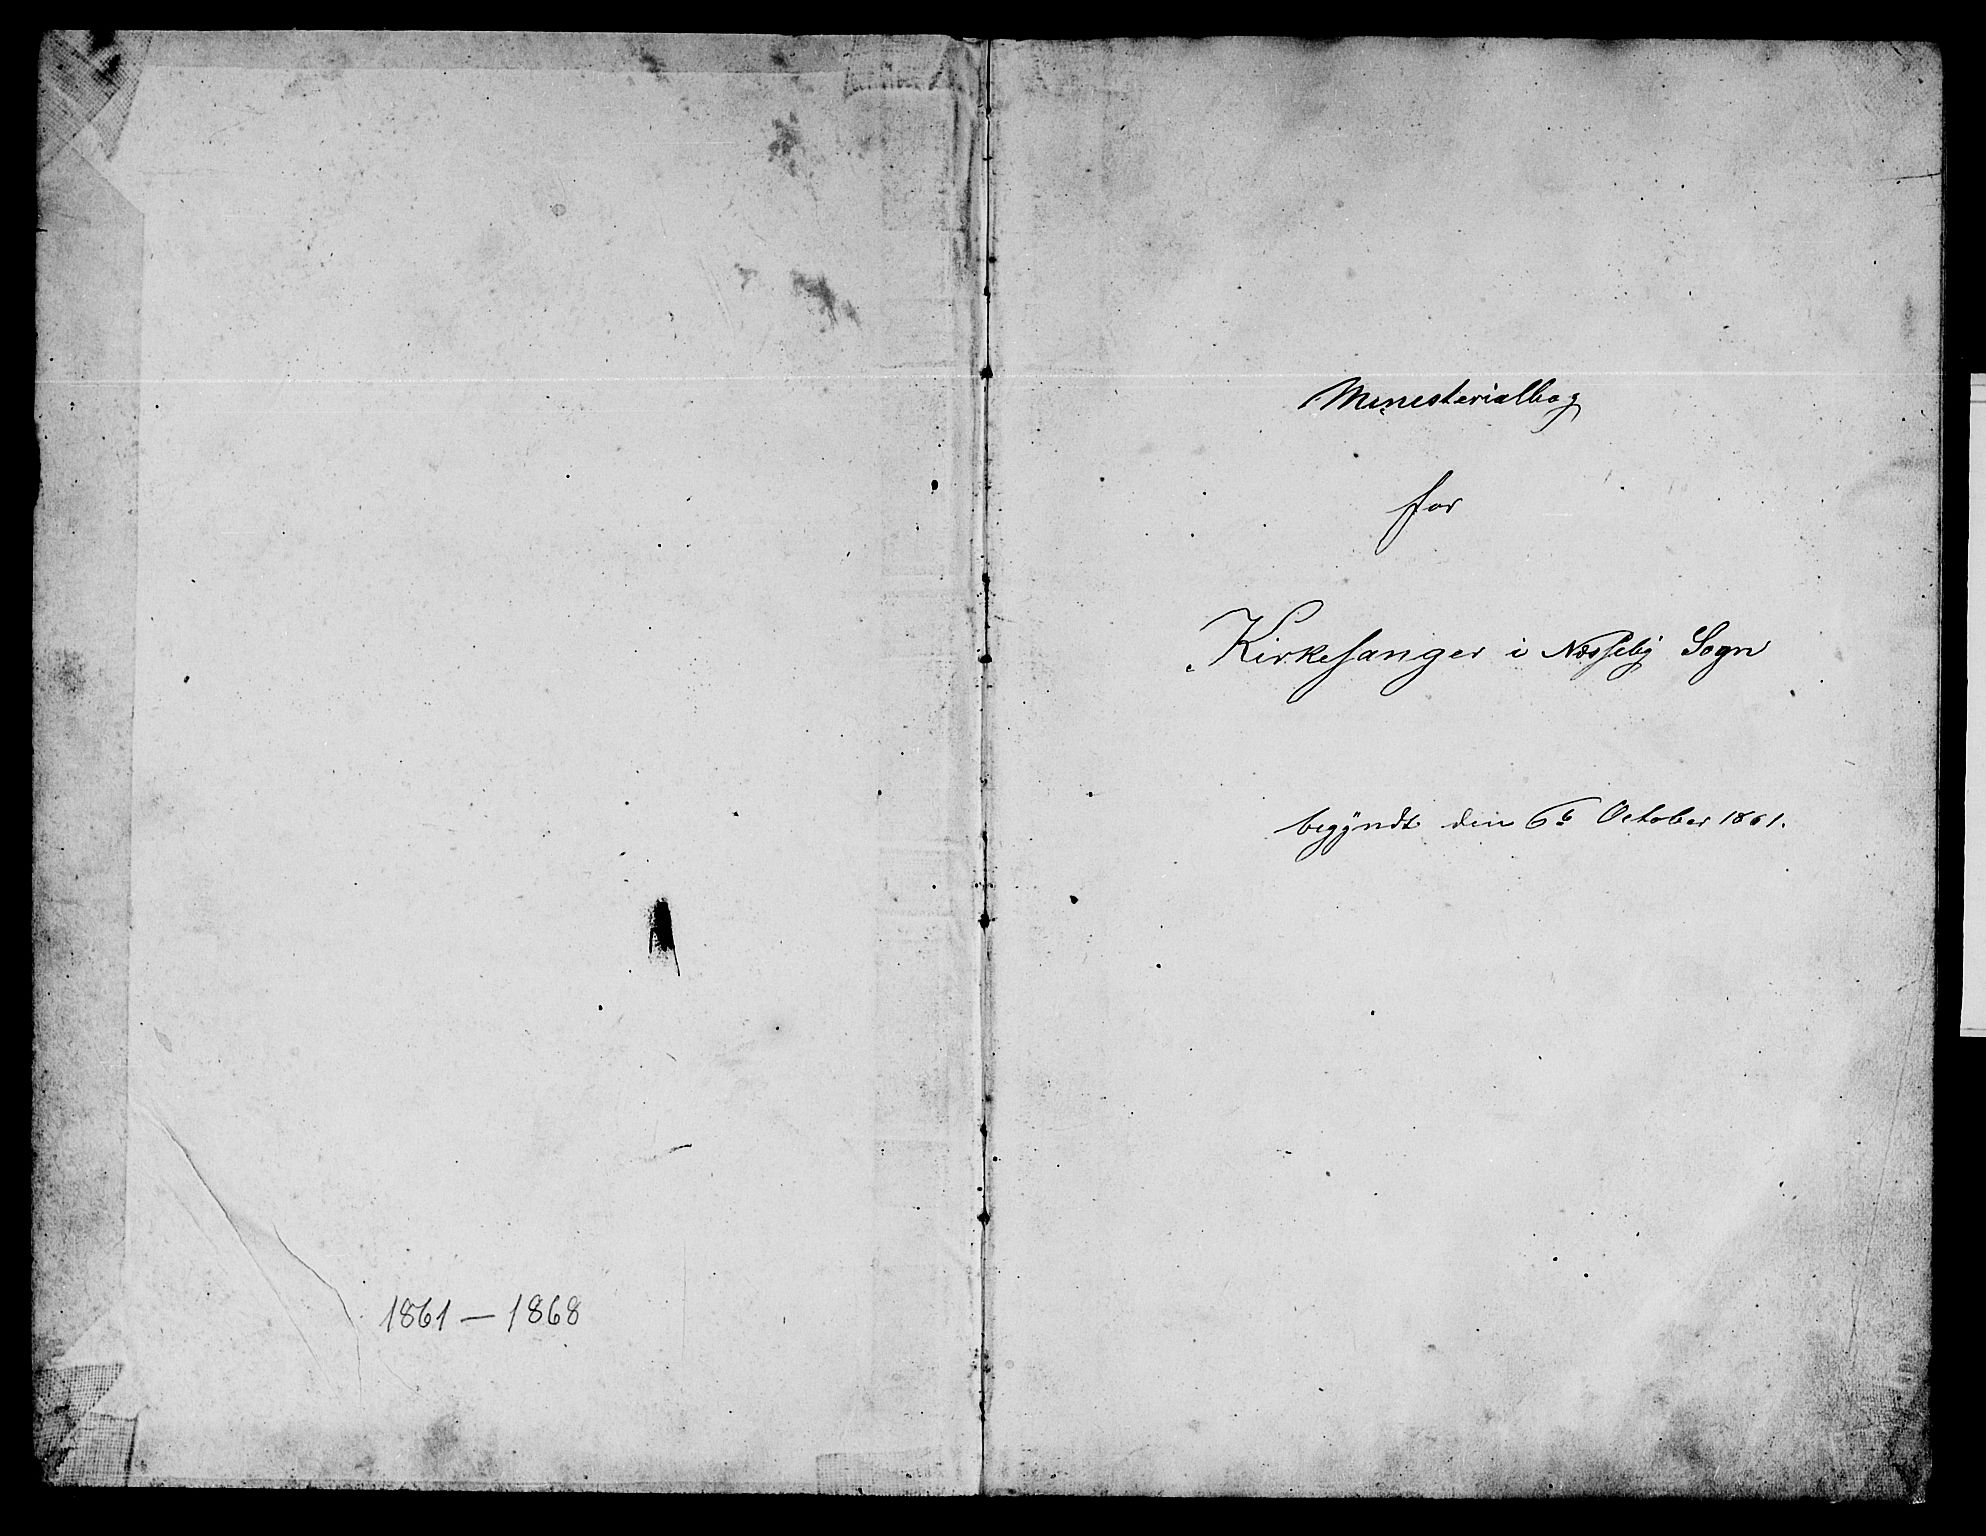 1861 — 1868
Ministerialbog
for
Kirkesanger i Næsseby Sogn
begyndt den 6te October 1861.